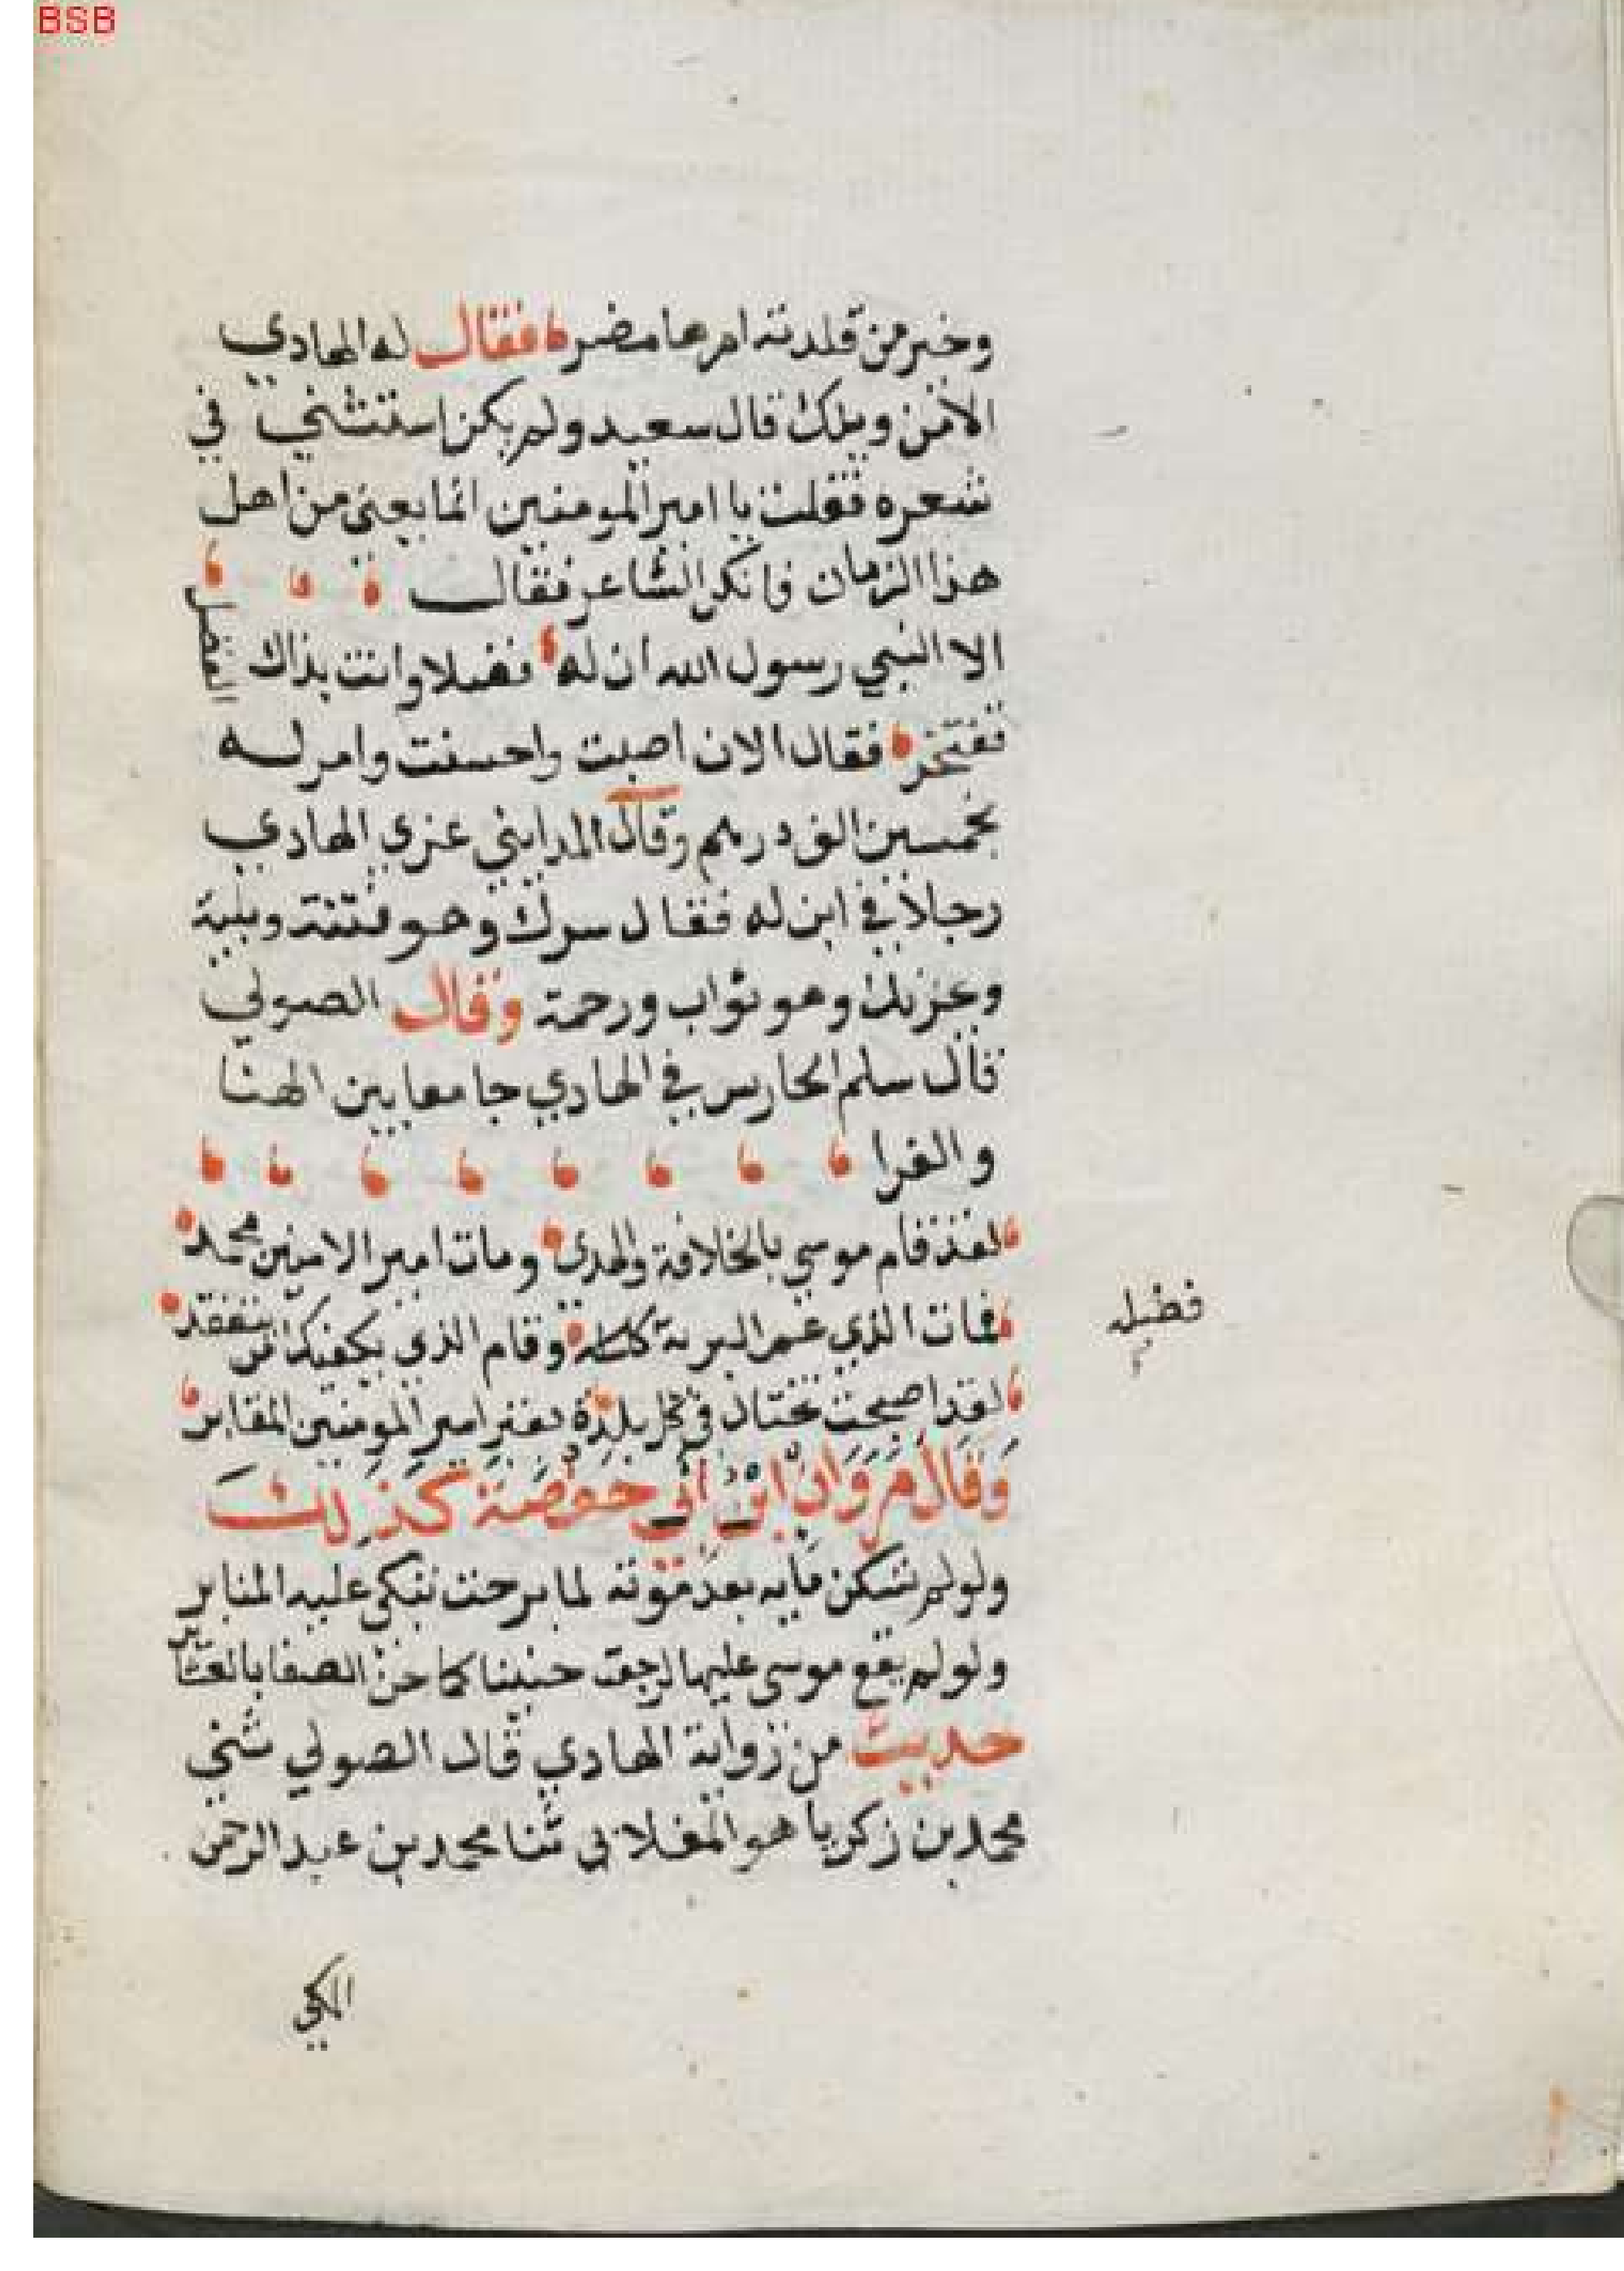 BSB
وخير من قلدته امرها مضر فقال له الهادي
الامن ويلك قال سعيد ولم يكن استثني في
شعره فقلت يا امير المومنين انما يعني من اهل
هذا الزمان فانكر الشاعر فقال
الا النبي رسول الله ان له فضلا وانت بذاك
الفضل
تفتخر فقال الان اصبت واحسنت وامر له
بخمسين الف درهم وقال المدايني عزي الهادي
رجلا في ابن له فقال سرك وهو فتنة وبلية
وحزنك وهو ثواب ورحمة وقال الصولي
قال سلم الخارس في الهادي جامعا بين الهنا
والغرا
لقد قام موسي بالخلافة والهدى ومات امير الامنين محمد
فمات الذي عم البرية كله وقام الذي يكفيك من يتفقد
لقد اصبحت تختال في كل بلدة بقبر امير المومنين المقابر
وقال مروان ابن ابي حفصة كذلك
ولو لم تسكن مابه بعد موته لما برحت تبكي عليه المنابر
ولو لم يقع موسى عليها لرجعت حنينا كما حن الصفا بالعشاير
حديث من رواية الهادي قال الصولي شني
محمد بن زكريا هو المغلابي ثنا محمد بن عبد الرحمن
المكي
فضيله